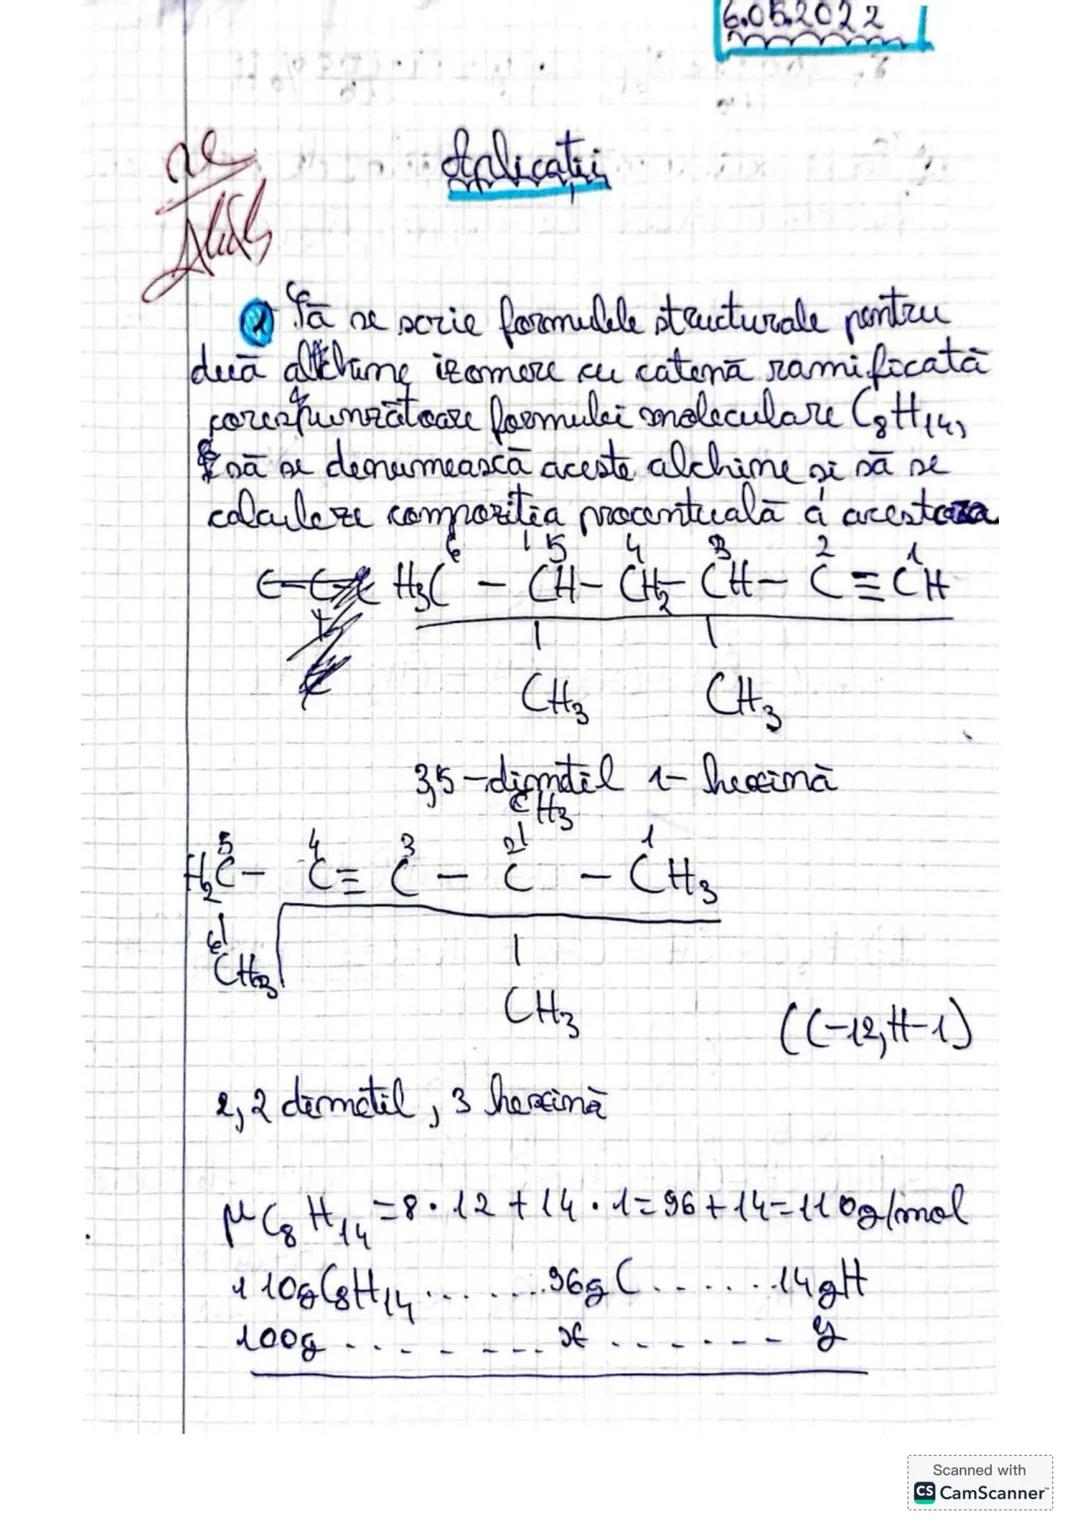 6.05.2022
Aplicații
1 Să se scrie formulele structurale pentru
duă alchine izomere cu catenă ramificată
corespunzătoare formulei moleculare C8H14,
să se denumească aceste alchine și să se
calculeze compoziția procentuală a acestora
6 5 4 3 2 1
H3C - CH - CH2 - CH - C ≡ CH
CH3 CH3
3,5-dimetil 1-hexină
CH3
5 4 3 2 1
H2C - C ≡ C - C - CH3
6
CH3
CH3
(C-12, H-1)
2,2 dimetil, 3 hexină
μ C8H14 = 8 · 12 + 14 · 1 = 96 + 14 = 110g/mol
110g C8H14 ....... 96g C ...... 14g H
100g ....... x ...... y
Scanned with
CS CamScanner